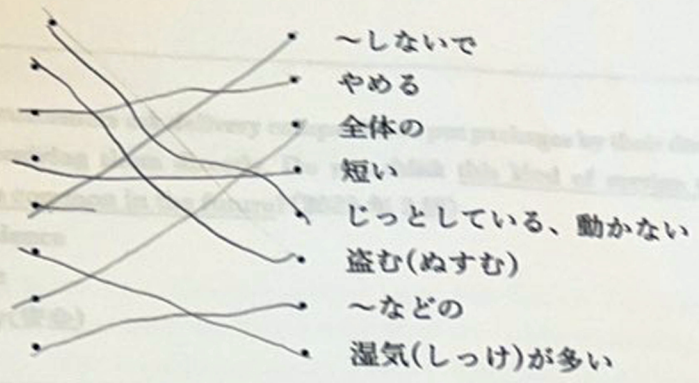 ～しないで
やめる
全体の
短い
じっとしている、動かない
盗む(ぬすむ)
～などの
湿気(しっけ)が多い